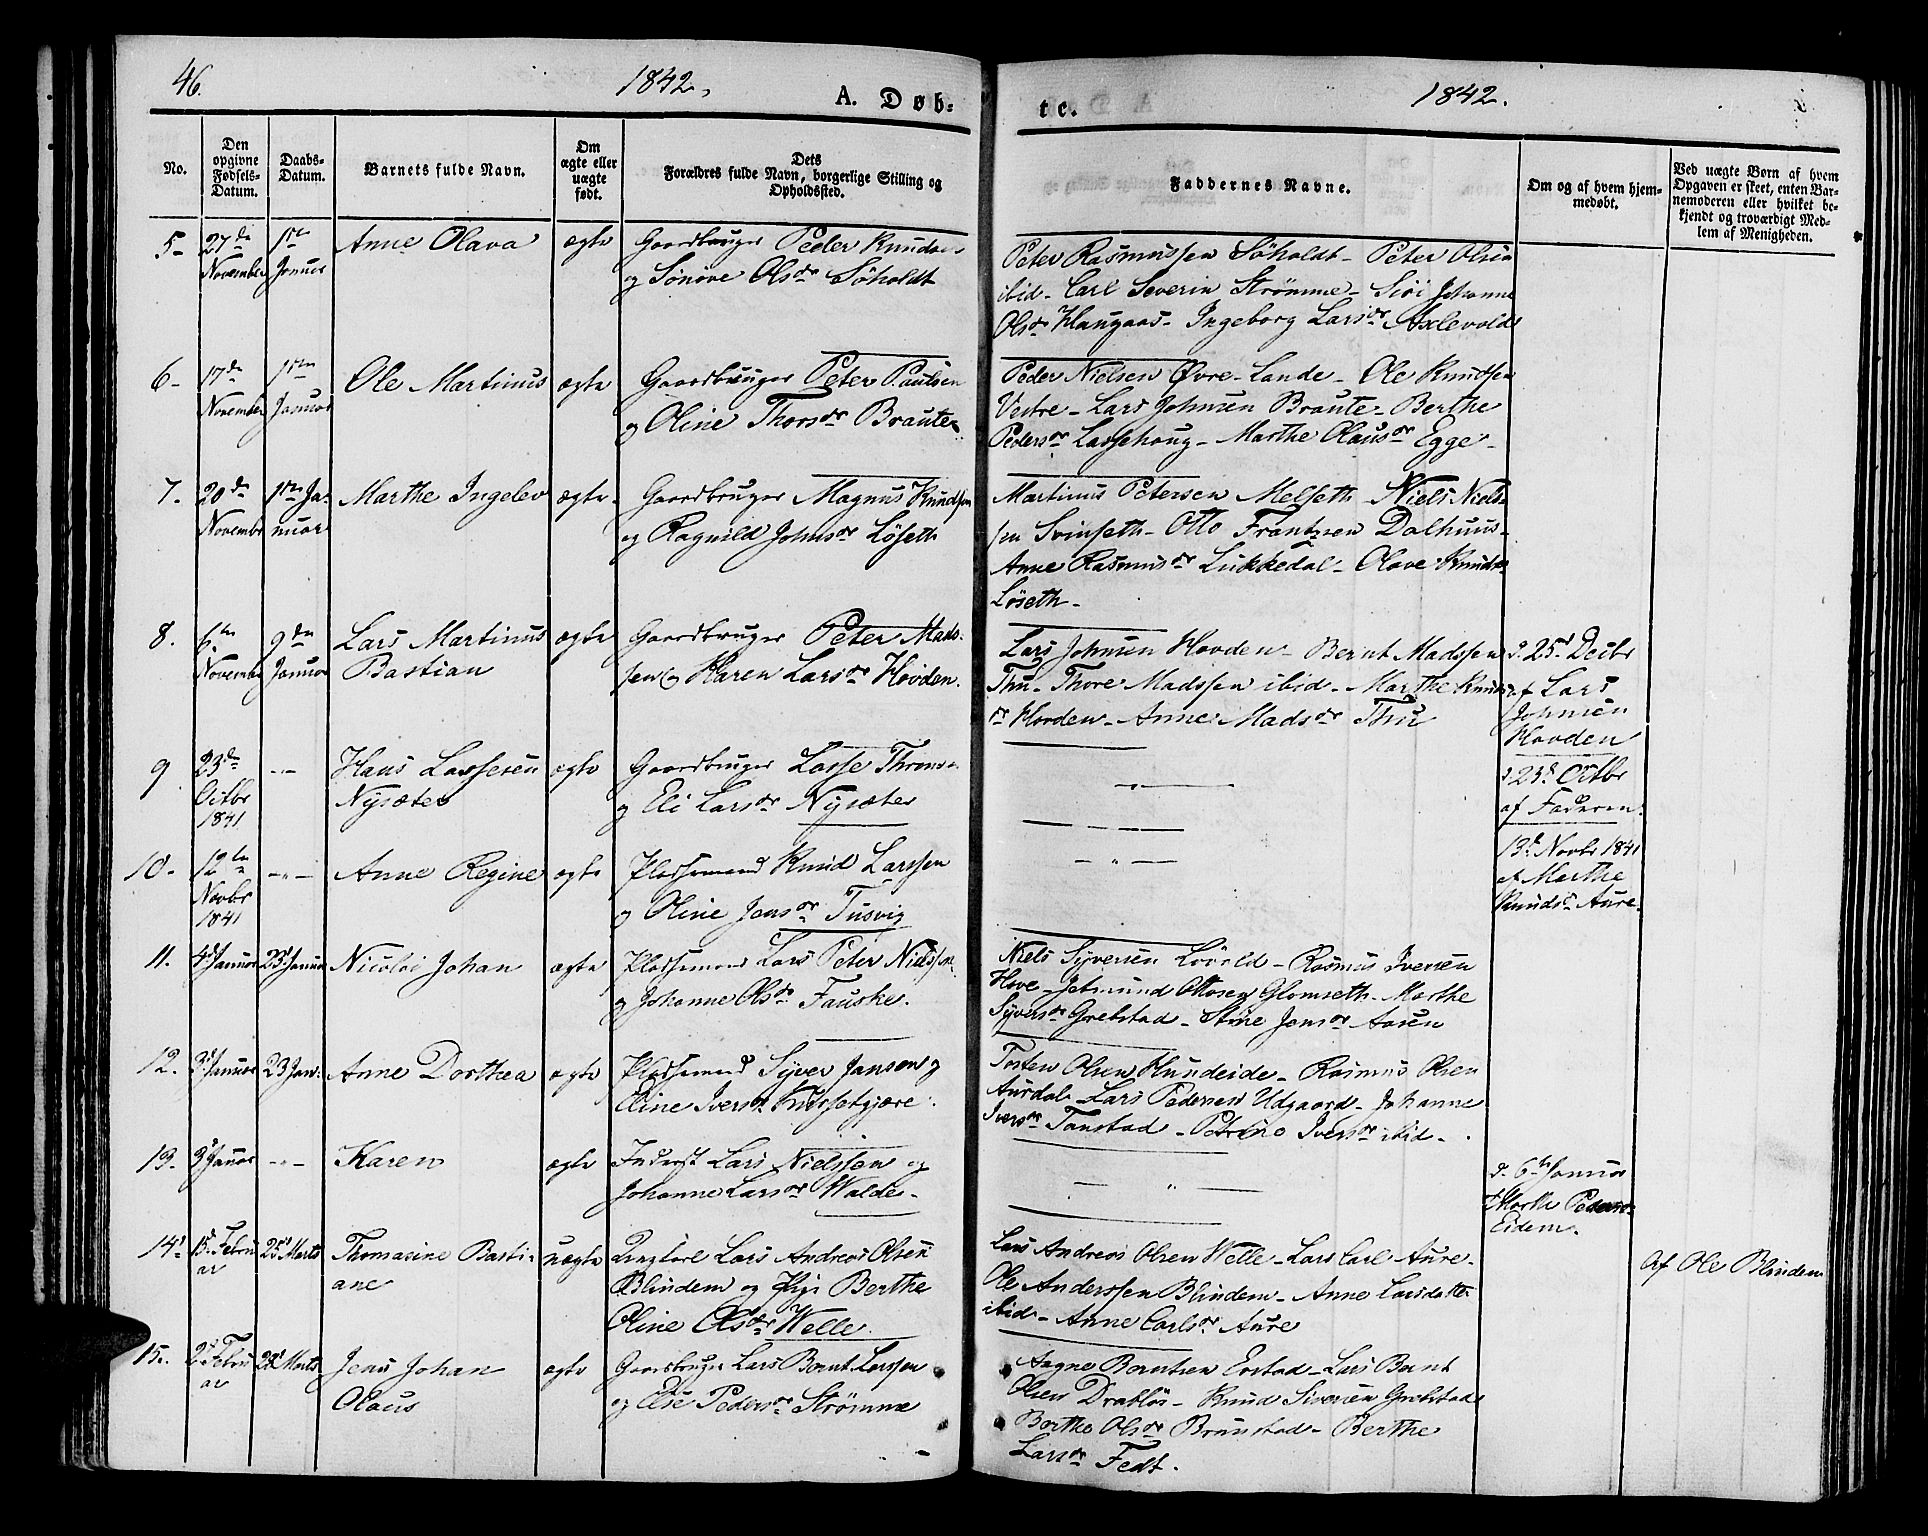 46.
1842.
A. Døb-
te.
1842.
No.
Den opgivne Fødsels-Datum.
Daabs-Datum.
Barnets fulde Navn.
Om ægte eller uægte født.
Dets Forældres fulde Navn, borgerlige Stilling og Opholdssted.
Faddernes Navne.
Om og af hvem hjem-medøbt.
Ved uægte Børn af hvem Opgaven er skeet, enten Bar-nemoderen eller hvilket be-kjendt og troværdigt Med-lem af Menigheden.
5
27de November
1te Januar
Anne Olava
ægte
Gaardbruger Peder Knudsen
og Sönöve Olsdr Söholdt
Peter Rasmussen Söholdt - Peter Olsen
ibid - Carl Severin Strömme - Johanne
Olsdr Haugaas - Ingeborg Larsdr Axlevold
6
17de November
1ste Januar
Ole Martinus
ægte
Gaardbruger Peter Paulsen
og Oline Thorsdr Braute
Peder Nielsen Øvre-Lande - Ole Knudsen
Vestre - Lars Johnsen Braute - Berthe
Pedersdr Lassehoug - Marthe Olausdr Egge
7.
20de November
1ste Januar
Marthe Ingelev
ægte
Gaardbruger Magnus Knudsen
og Ragnild Johnsdr Löseth
Martinus Petersen Melseth - Niels Niels-
sen Svinseth - Otto Frantzsen Dalhuus -
Anne Rasmusdr Lukkedal - Olave Knuds
Löseth -
8.
6te November
9de Januar
Lars Martinus
Bastian
ægte
Gaardbruger Peter Mads-
sen og Karen Larsdr Hovden.
Lars Johnsen Hovden - Bernt Madssen
Thu - Thore Madssen ibid - Marthe Knuds
dr Hovden - Anne Madsdr Thu
d. 25d Decbr
af Lars
Johnsen
Hovden
9
23de Octbr 1841
-"-
Hans Lassesen
Nysæter
ægte
Gaardbruger Lasse Thomsen
og Eli Larsdr Nysæter
-"-
d 25d Octbr
af Faderen.
10.
12te Novbr 1841
-"-
Anne Regine
ægte
Pladsemand Knud Larssen
og Oline Jensdr Tusvig
-"-
13d Novbr 1841
af Marthe
Knudsdr Aure.
11.
4d Januar
23d Januar
Nicolai Johan
ægte
Pladsemand Lars Peter Nielssen
og Johanne Olsdr Fauske.
Niels Syversen Lövold - Rasmus Iversen
Hove - Jetmund Ottosen Glomseth - Marthe
Syversdr Grebstad - Stine Jensdr Aasen
12.
3d Januar
23 Jan.
Anne Dorthea
ægte
Pladsemand Syver Jansen og
Eline Iversdr
Torsten Olsen Hundeide - Rasmus Olsen
Aurdal - Lars Pedersen Udgaard - Johanne
Iversdr Tanstad - Petrine Iversdr ibid -
13.
3d Januar
-"-
Karen
ægte
Inderst Lars Nielssen og
Johanne Larsdr Walde.
-"-
d. 6te Januar
Marth Peders
Eidem.
14
15d Februar
25d Marts
Thomasine Basti-
ane
uægte
Ungkarl Lars Andreas Olsen
Blindem og Pige Berthe
Oline Olsdr Welle.
Lars Andreas Olsen Welle - Lars Carl Aure -
Ole Anderssen Blindem - Anne Larsdatter
ibid - Anne Carlsdr Aure
Af Ole Blindem
15.
2d Februar
28 Marts
Jens Johan
Olaus
ægte
Gaardbruger Lars Bernt Larssen
og Else Pedersdr Strömme
Aagne Berntsen Eerstad - Lars Bernt
Olsen Drablös - Knud Siversen Grebstad
Berthe Olsdr Brunstad - Berthe
Larsdr Fedt.